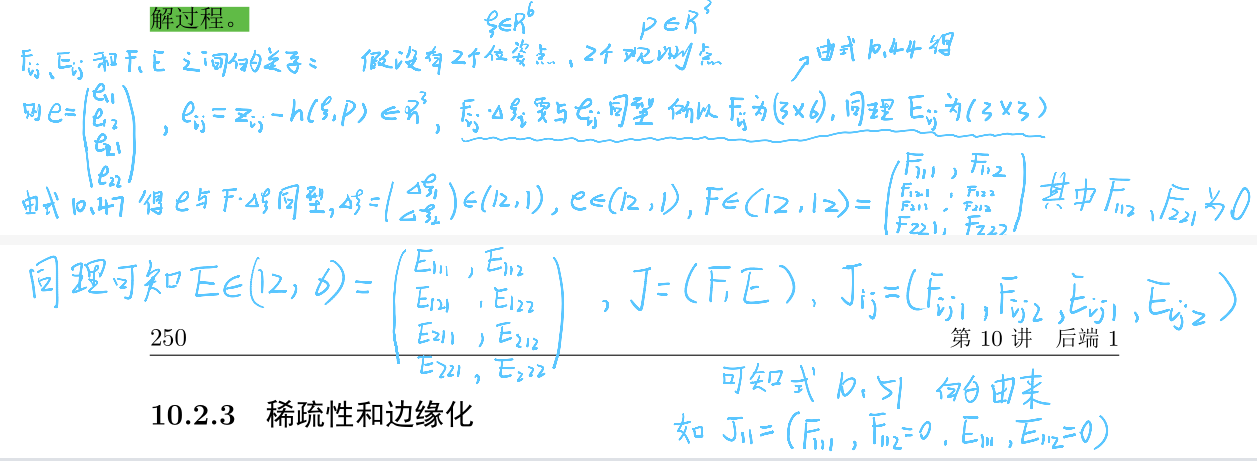 解过程。
ξ∈R⁶ p∈R³
Fij、Eij 和 F、E 之间的关系： 假设有2个位姿点、2个观测点 ↗由式10.44得
则 e=(e11 e12 e21 e22), eij = zij - h(ξ,p) ∈R³, Fij·Δξi要与eij同型 所以 Fij为(3×6), 同理 Eij为(3×3)
由式10.47 得 e与 F·Δξ同型, Δξ=(Δξ1 Δξ2)∈(12,1), e∈(12,1), F∈(12,12)=(F111, F112 F121, F122 F211, F212 F221, F222) 其中F112、F221为0
同理可知 E∈(12, 6) = (E111, E112 E121, E122 E211, E212 E221, E222), J=(F,E), Jij=(Fij1, Fij2, Eij1, Eij2)
250 第 10 讲 后端 1
可知式 10.51 的由来
10.2.3 稀疏性和边缘化
如 J11=(F111, F112=0, E111, E112=0)